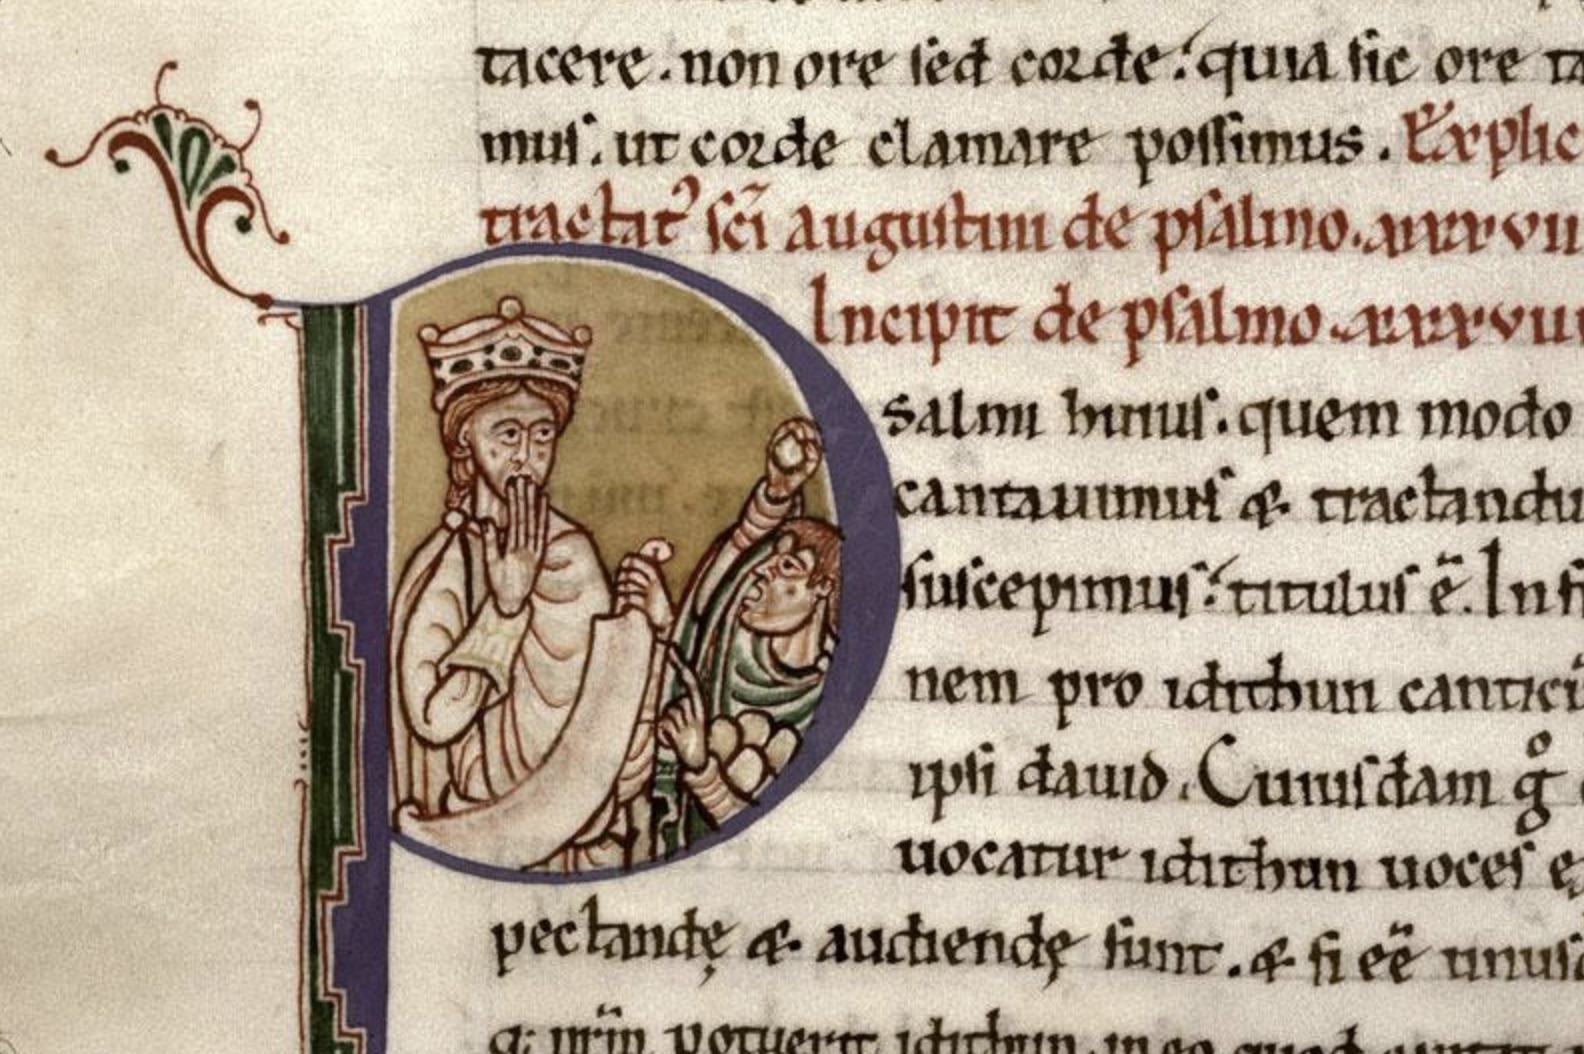 tacere. non ore sed corde: quia sic ore ta
mus. ut corde clamare possimus. Explic
tractat᾽ sc̄i augustini de psalmo. xxxvii
Incipit de psalmo. xxxvii
Psalmi huius. quem modo
cantauimus & tractandu
suscepimus: titulus ē. In fi
nem pro idithun canticū
ipsi dauid. Cuiusdam gͦ
uocatur idithun uoces e
pectandę & audiendę sunt. & si eē̄ unus
potuerit idithun. in eo quod